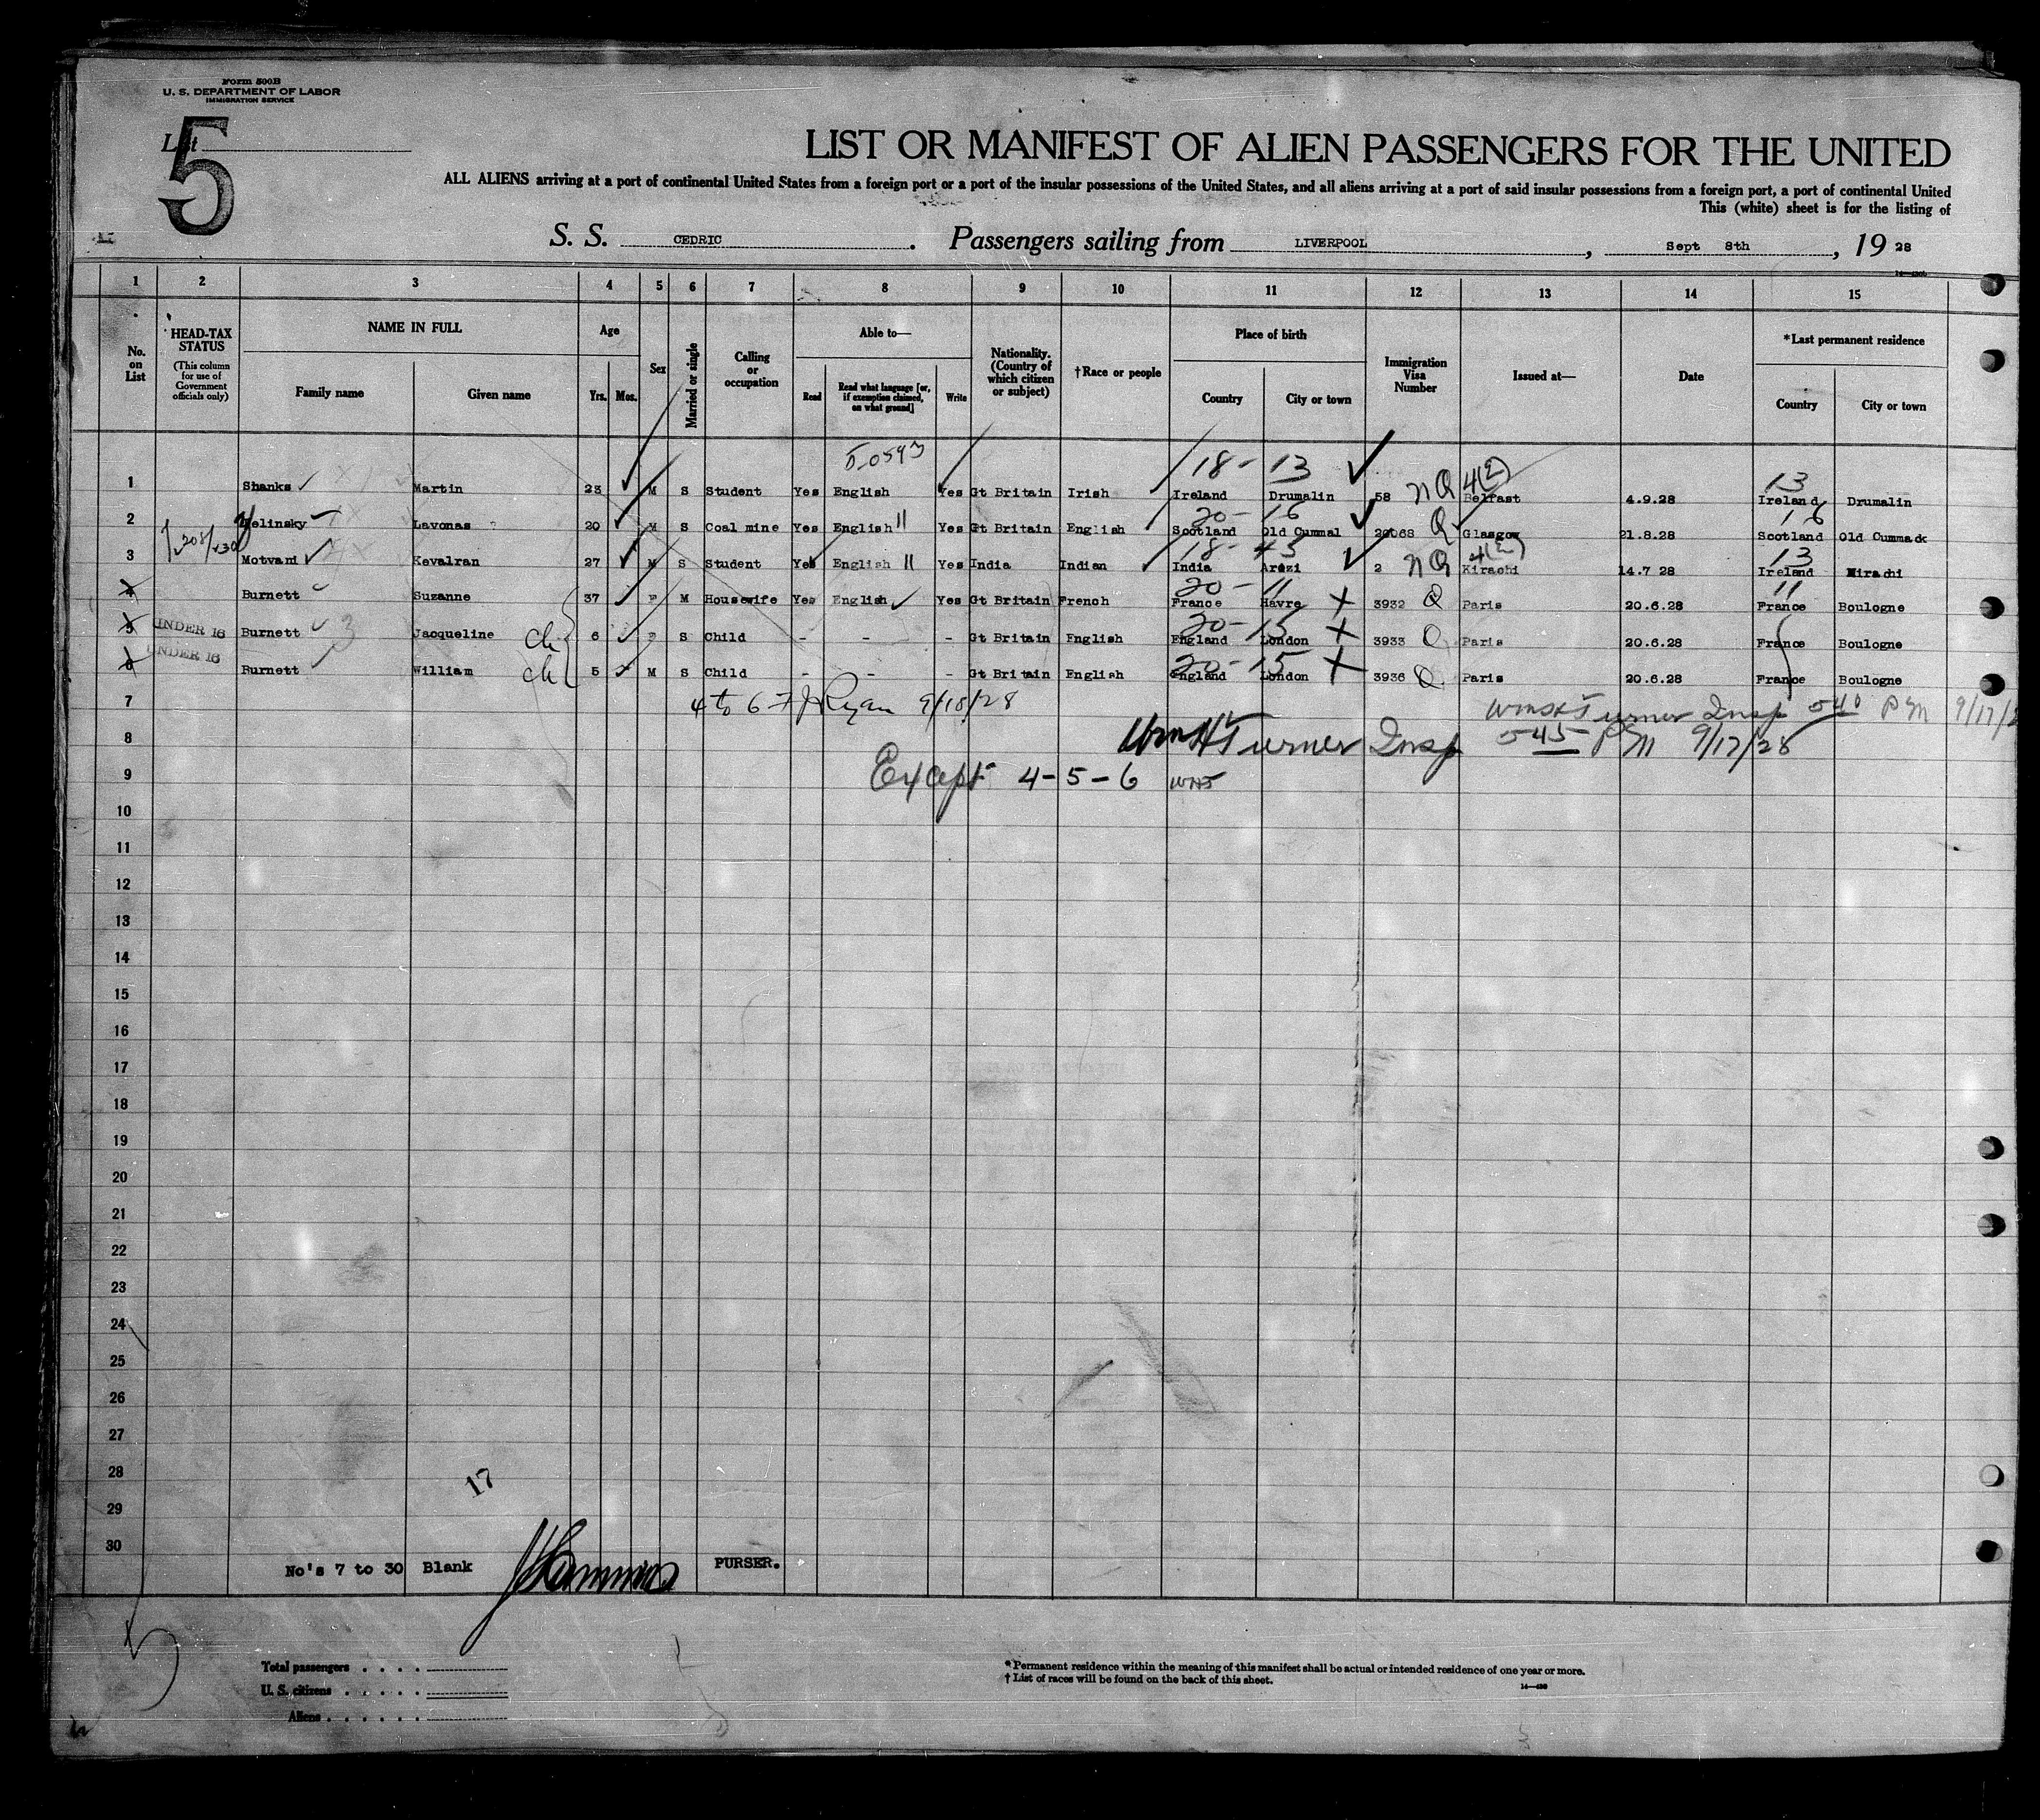 Form 500B
U. S. DEPARTMENT OF LABOR
IMMIGRATION SERVICE
List 5
LIST OR MANIFEST OF ALIEN PASSENGERS FOR THE UNITED
ALL ALIENS arriving at a port of continental United States from a foreign port or a port of the insular possessions of the United States, and all aliens arriving at a port of said insular possessions from a foreign port, a port of continental United
This (white) sheet is for the listing of
S. S. CEDRIC. Passengers sailing from LIVERPOOL, Sept 8th, 19 28
1 2 3 4 5 6 7 8 9 10 11 12 13 14 15
No. on List
HEAD-TAX STATUS
(This column for use of Government officials only)
NAME IN FULL
Family name Given name
Age
Yrs. Mos.
Sex
Married or single
Calling or occupation
Able to—
Read Read what language [or, if exemption claimed, on what ground] Write
Nationality. (Country of which citizen or subject)
†Race or people
Place of birth
Country City or town
Immigration Visa Number
Issued at—
Date
*Last permanent residence
Country City or town
18 - 13 13
1 Shanks Martin 23 M S Student Yes English Yes Gt Britain Irish Ireland Drumalin 58 NQ 4(E) Belfast 4.9.28 Ireland Drumalin
20 - 16 16
2 Lavonas 20 M S Coal mine Yes English Yes Gt Britain English Scotland Old Cummal Q Glasgow 21.8.28 Scotland Old Cummack
18 - 43 13
3 Motvani Kevalran 27 M S Student Yes English Yes India Indian India Arozi 2 NQ 4(E) Kirachi 14.7 28 Ireland Kirachi
20 - 11 11
4 Burnett Suzanne 37 F M Housewife Yes English Yes Gt Britain French France Havre 3932 Q Paris 20.6.28 France Boulogne
20 - 15
5 UNDER 16 Burnett Jacqueline ch 6 F S Child - - - Gt Britain English England London 3933 Q Paris 20.6.28 France Boulogne
20 - 15
6 UNDER 16 Burnett William ch 5 M S Child - - - Gt Britain English England London 3936 Q Paris 20.6.28 France Boulogne
7 4 to 6 F J Ryan 9/18/28 Wm H Turner Insp 540 PM 9/17/2
8 Wm H Turner Insp 545 PM 9/17/28
9 Except 4-5-6 WHT
10
11
12
13
14
15
16
17
18
19
20
21
22
23
24
25
26
27
28 17
29
30
No's 7 to 30 Blank PURSER.
Total passengers . . . .
U. S. citizens . . . . .
Aliens . . . . . .
*Permanent residence within the meaning of this manifest shall be actual or intended residence of one year or more.
† List of races will be found on the back of this sheet.